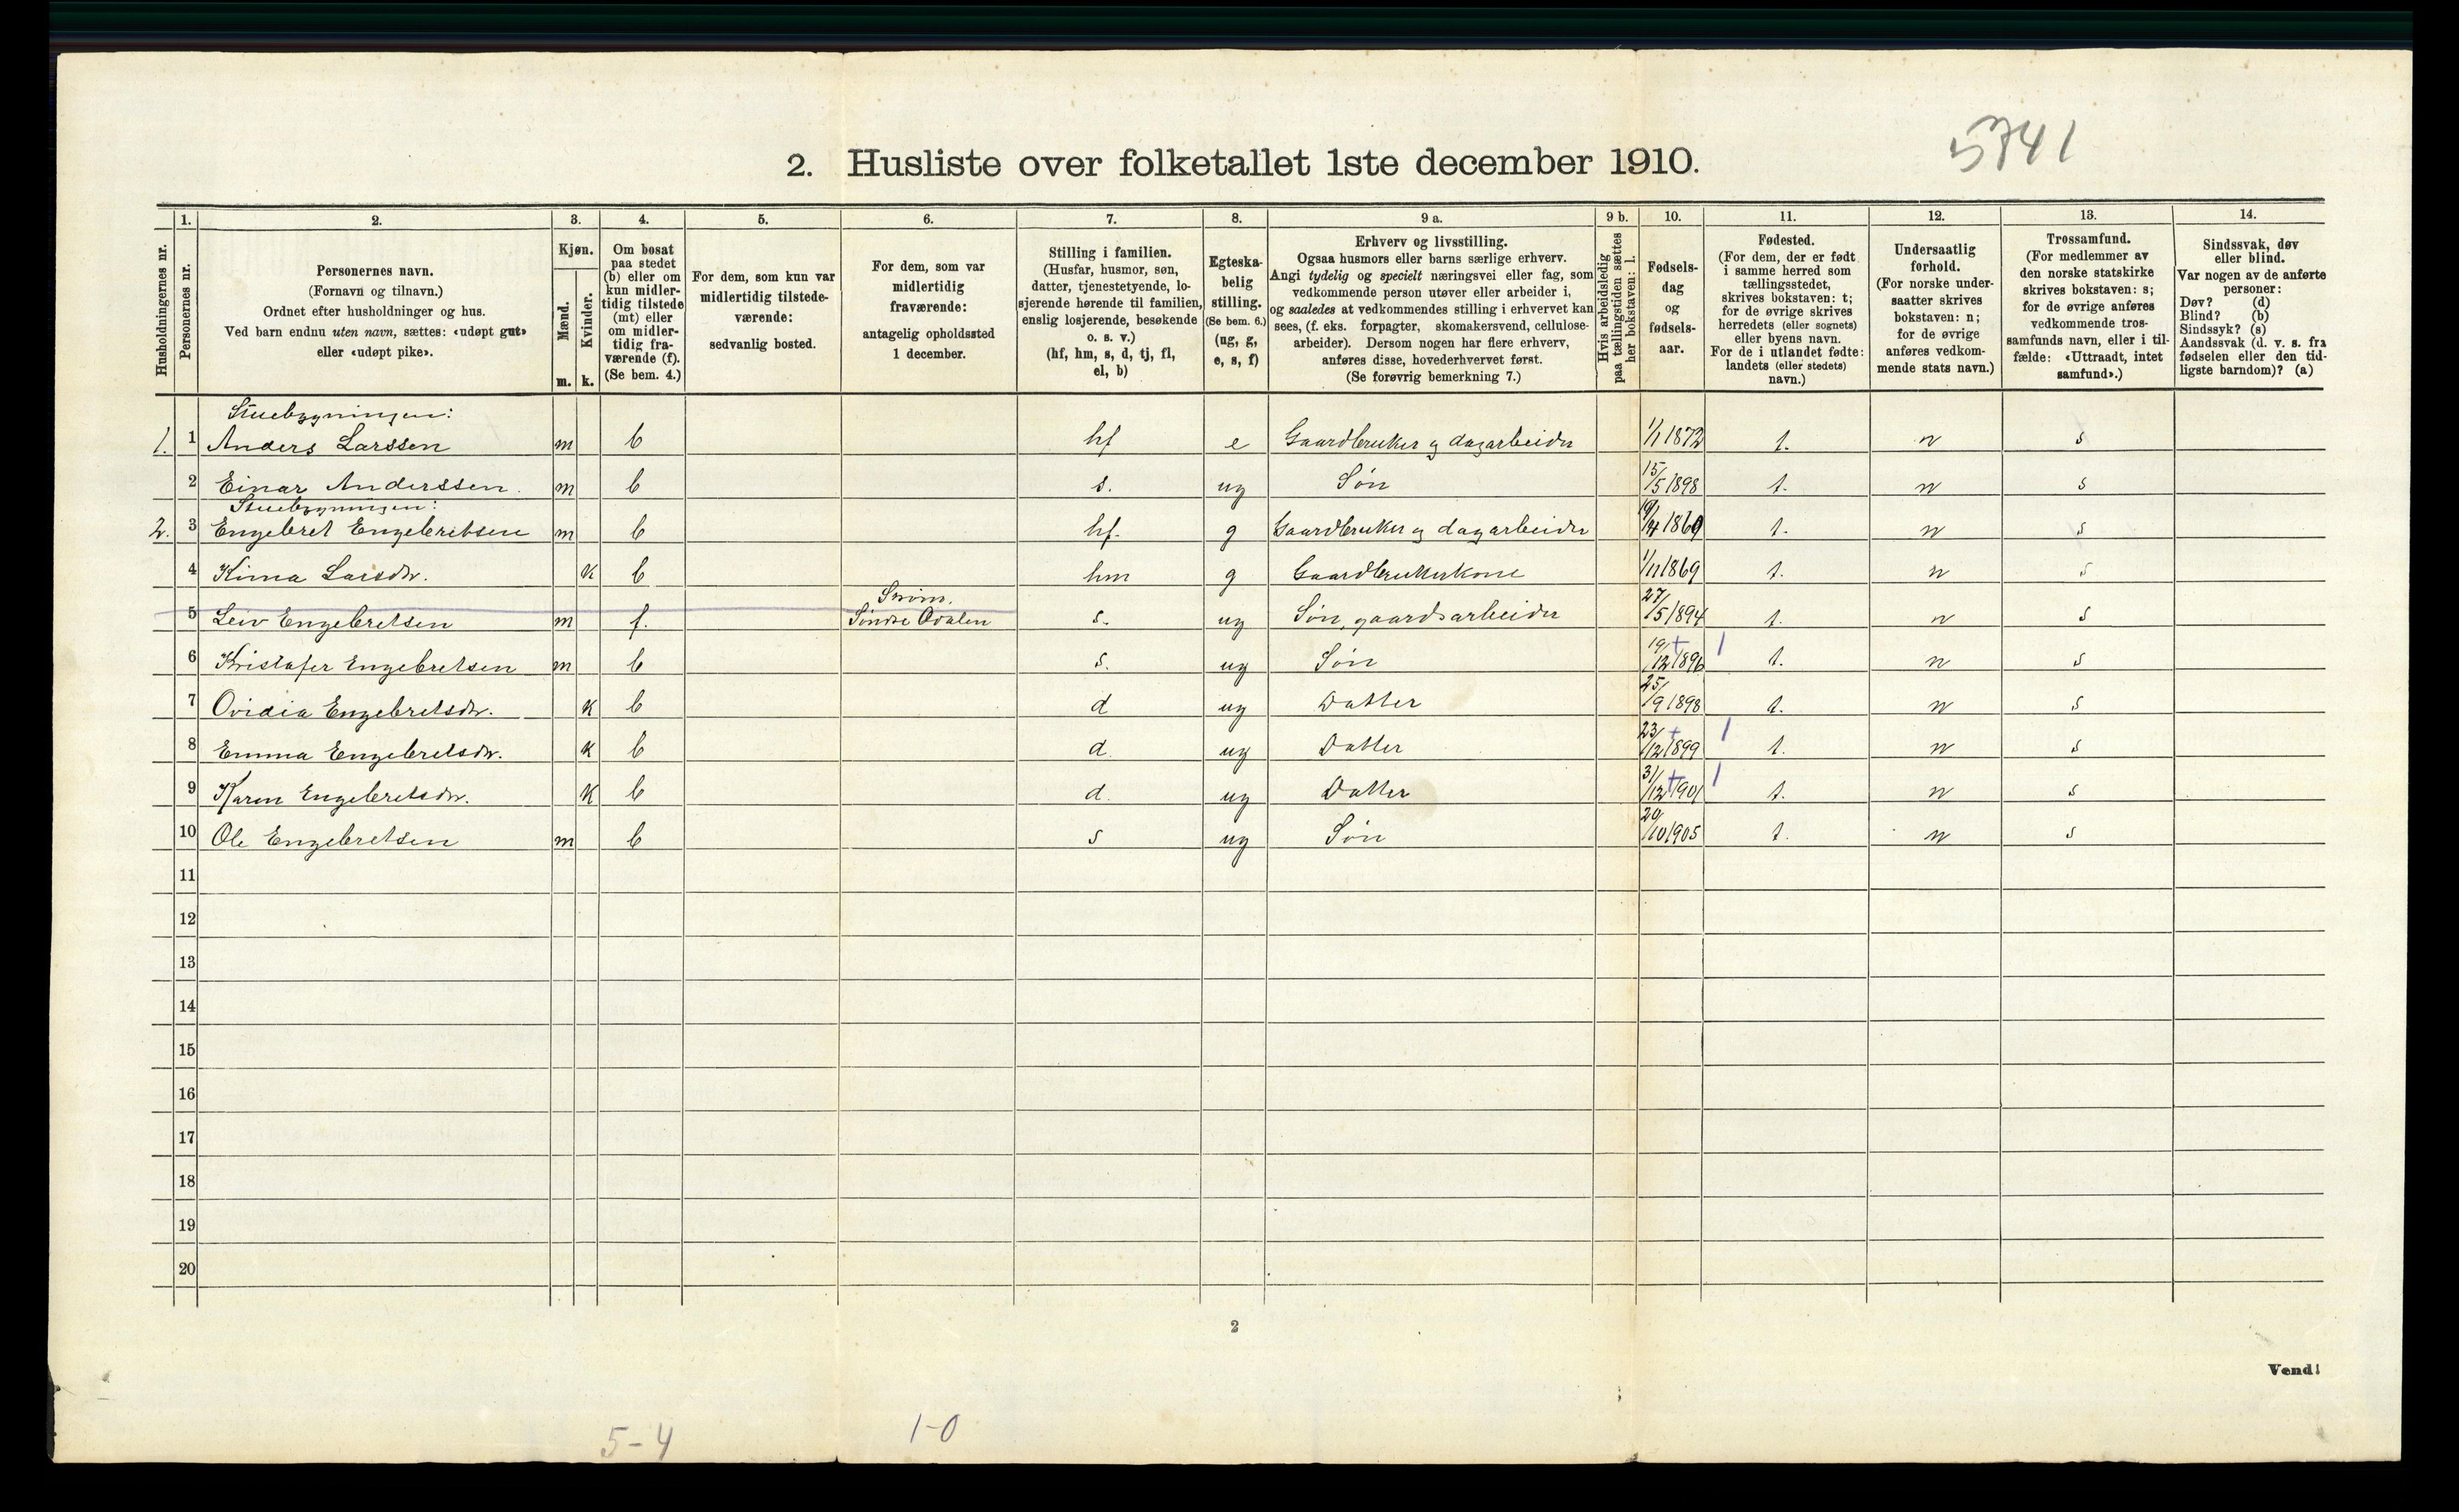 5741
2. Husliste over folketallet 1ste december 1910.
1. 2. 3. 4. 5. 6. 7. 8. 9 a. 9 b. 10. 11. 12. 13. 14.
Husholdningernes nr.
Personernes nr.
Personernes navn.
(Fornavn og tilnavn.)
Ordnet efter husholdninger og hus.
Ved barn endnu uten navn, sættes: «udøpt gut»
eller «udøpt pike».
Kjøn.
Mænd.
Kvinder.
m. k.
Om bosat
paa stedet
(b) eller om
kun midler-
tidig tilstede
(mt) eller
om midler-
tidig fra-
værende (f).
(Se bem. 4.)
For dem, som kun var
midlertidig tilstede-
værende:
sedvanlig bosted.
For dem, som var
midlertidig
fraværende:
antagelig opholdssted
1 december.
Stilling i familien.
(Husfar, husmor, søn,
datter, tjenestetyende, lo-
sjerende hørende til familien,
enslig losjerende, besøkende
o. s. v.)
(hf, hm, s, d, tj, fl,
el, b)
Egteska-
belig
stilling.
(Se bem. 6.)
(ug, g,
e, s, f)
Erhverv og livsstilling.
Ogsaa husmors eller barns særlige erhverv.
Angi tydelig og specielt næringsvei eller fag, som
vedkommende person utøver eller arbeider i,
og saaledes at vedkommendes stilling i erhvervet kan
sees, (f. eks. forpagter, skomakersvend, cellulose-
arbeider). Dersom nogen har flere erhverv,
anføres disse, hovederhvervet først.
(Se forøvrig bemerkning 7.)
Hvis arbeidsledig
paa tællingstiden sættes
her bokstaven: l.
Fødsels-
dag
og
fødsels-
aar.
Fødested.
(For dem, der er født
i samme herred som
tællingsstedet,
skrives bokstaven: t;
for de øvrige skrives
herredets (eller sognets)
eller byens navn.
For de i utlandet fødte:
landets (eller stedets)
navn.)
Undersaatlig
forhold.
(For norske under-
saatter skrives
bokstaven: n;
for de øvrige
anføres vedkom-
mende stats navn.)
Trossamfund.
(For medlemmer av
den norske statskirke
skrives bokstaven: s;
for de øvrige anføres
vedkommende tros-
samfunds navn, eller i til-
fælde: «Uttraadt, intet
samfund».)
Sindssvak, døv
eller blind.
Var nogen av de anførte
personer:
Døv? (d)
Blind? (b)
Sindssyk? (s)
Aandssvak (d. v. s. fra
fødselen eller den tid-
ligste barndom)? (a)
Stuebygningen:
1. 1 Anders Larssen m b hf e Gaardbruker og dagarbeider 1/1 1872 t. n s
2 Einar Anderssen. m b s. ug Søn 15/5 1898 t. n s
Stuebygningen:
2. 3 Engebret Engebretsen m b hf. g Gaardbruker og dagarbeider 19/4 1869 t. n s
4 Kirna Larsdtr. k b hm g Gaardbrukerkone 1/11 1869 t. n s
Strøm,
5 Leiv Engebretsen m f. Søndre Odalen s. ug Søn, gaardsarbeider 27/5 1894 t. n s
6 Kristofer Engebretsen m b s. ug Søn 19/12 1896 + 1 t. n s
7 Ovidia Engebretsdtr. k b d ug Datter 25/9 1898 t. n s
8 Emma Engebretsdtr. k b d. ug Datter 23/12 1899 + 1 t. n s
9 Karen Engebretsdtr. k b d. ug Datter 31/12 1901 + 1 t. n s
10 Ole Engebretsen m b s ug Søn 20/10 1905 t. n s
11
12
13
14
15
16
17
18
19
20
2
Vend!
5-4 1-0